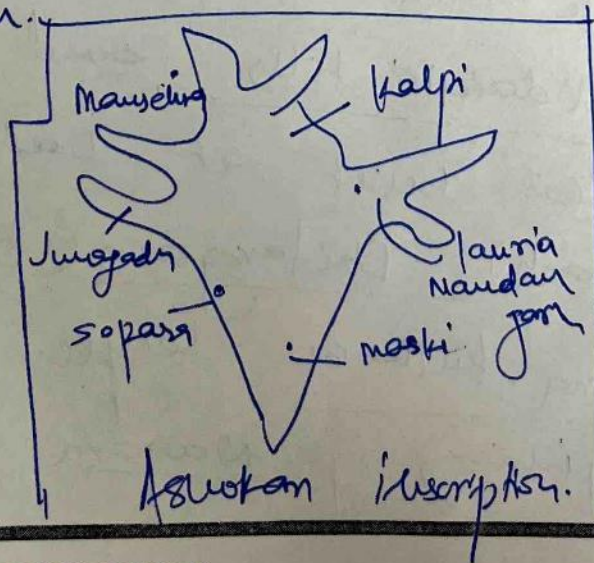 Mansehra
Kalpi
Junagadh
sopara
lauria
Nandan
garh
maski
Ashokan inscription.